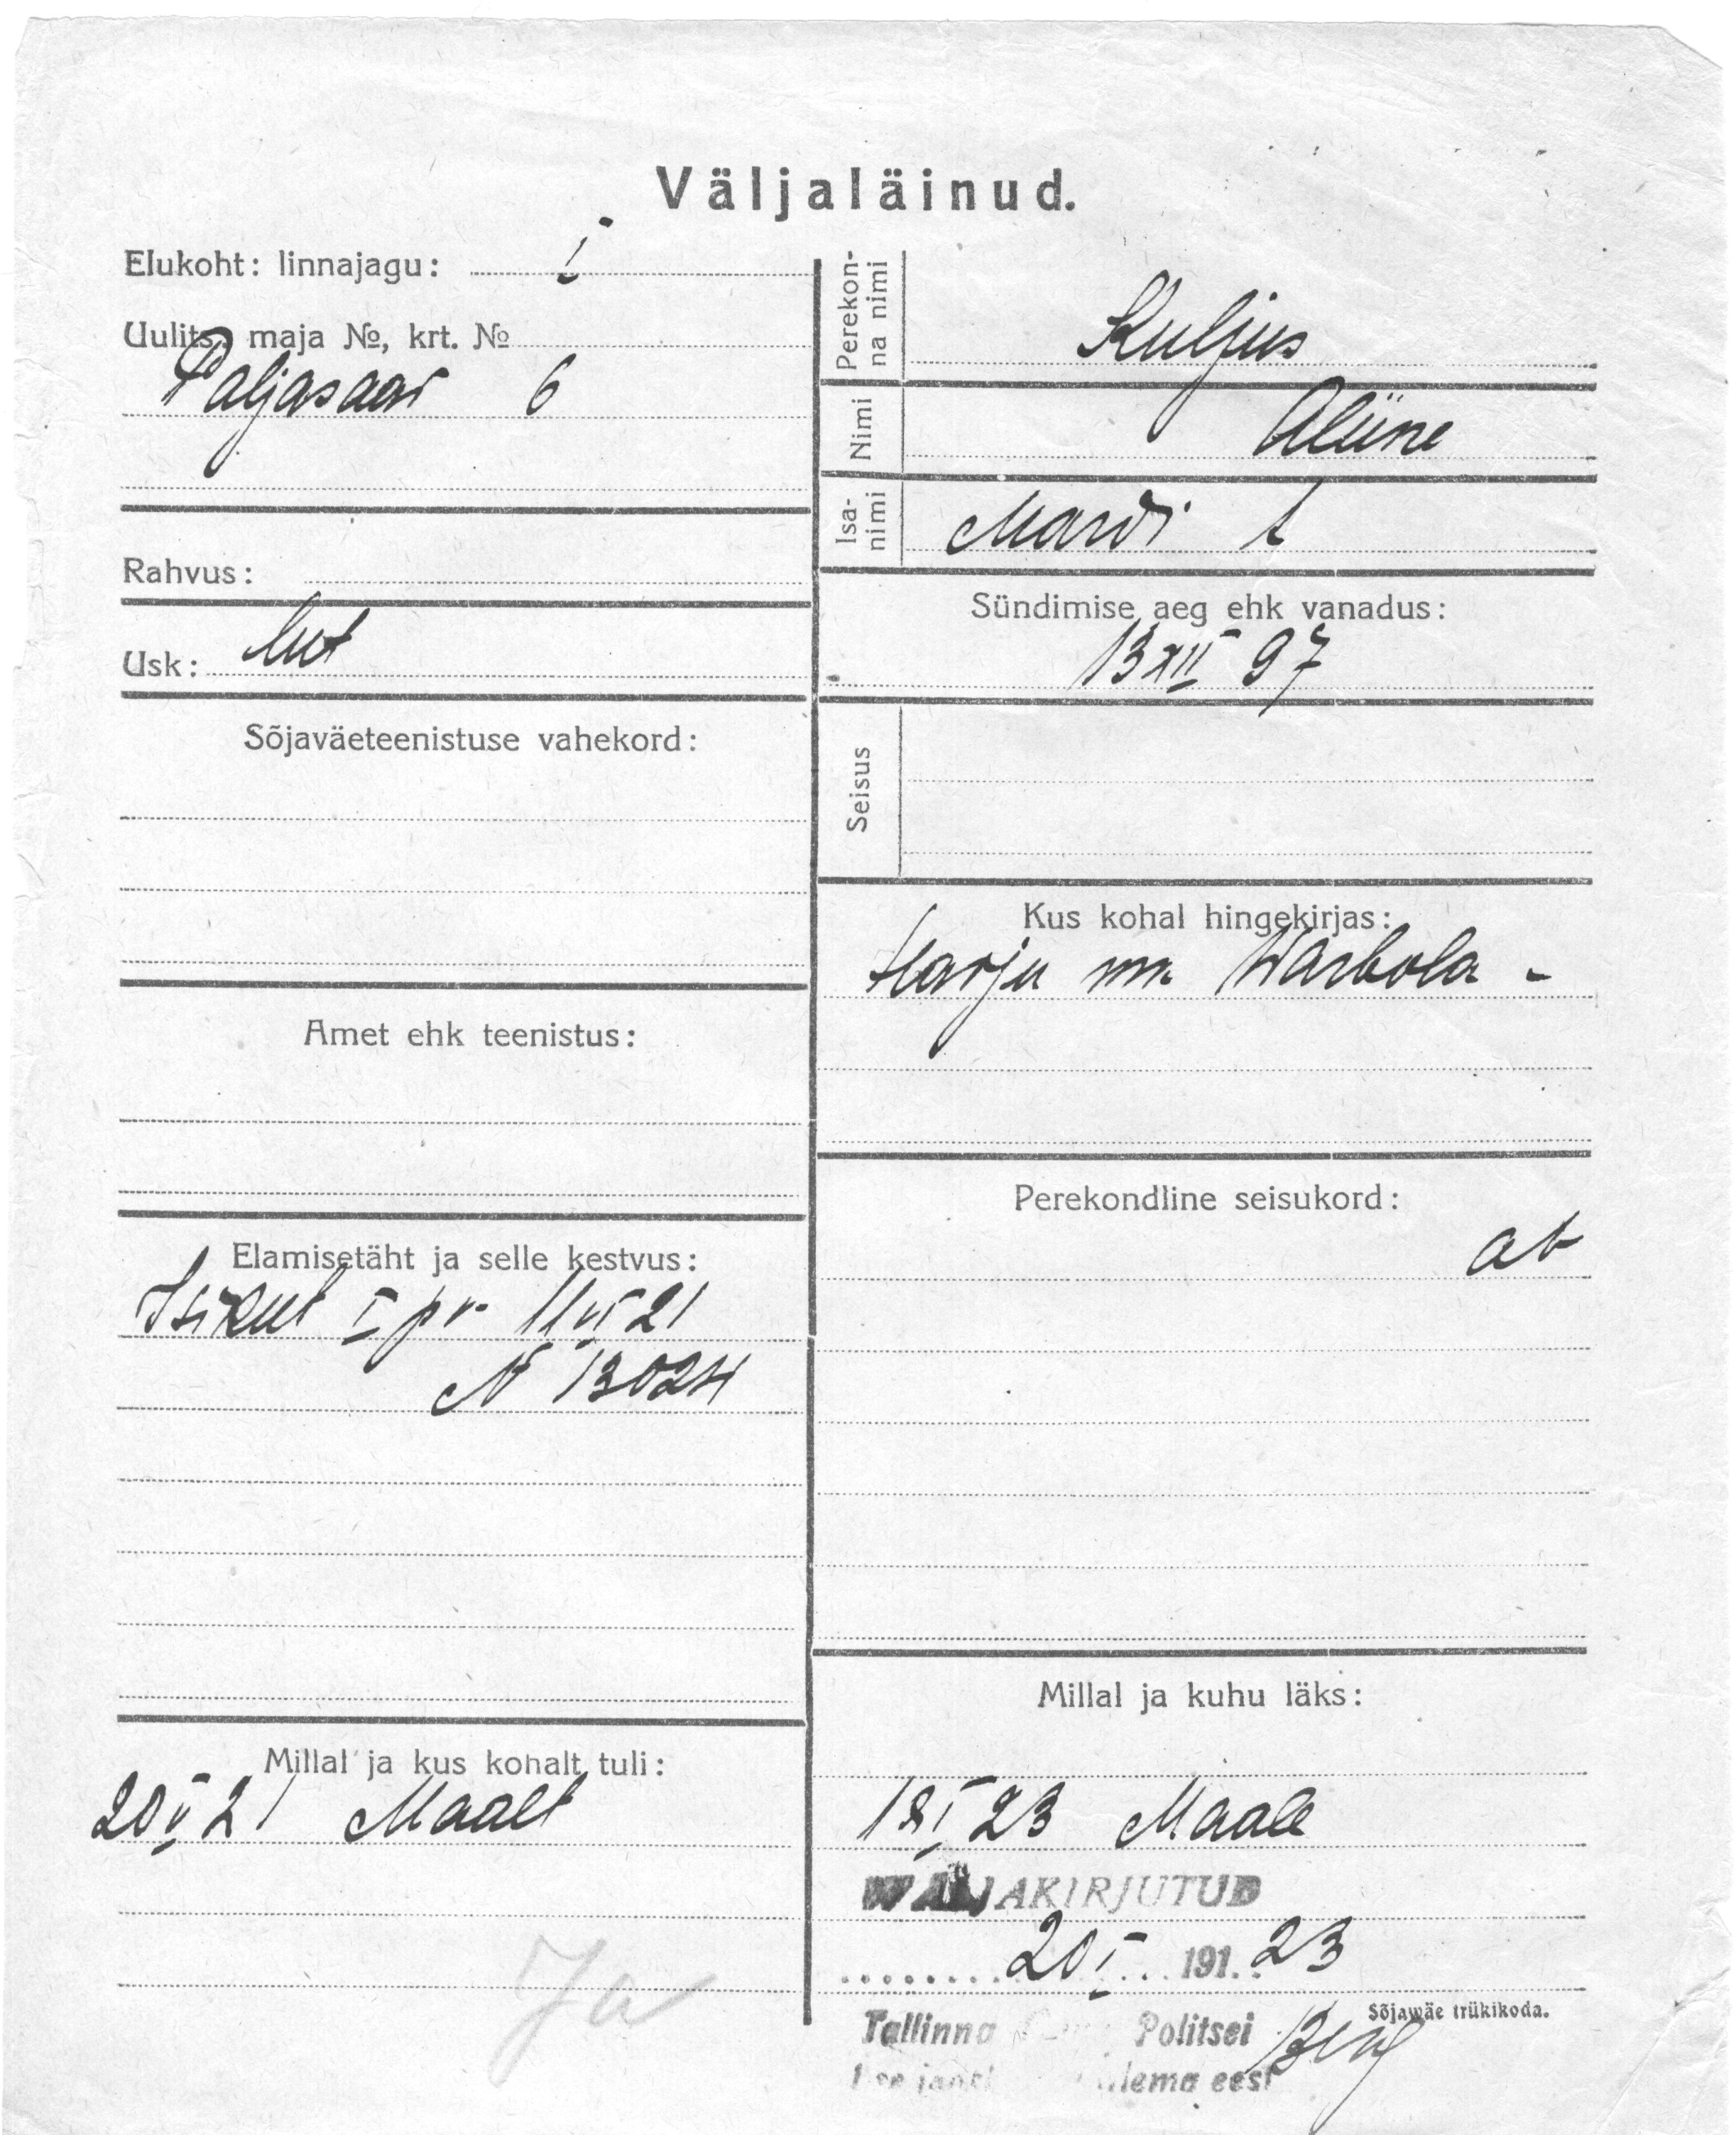 Väljaläinud.
Elukoht: linnajagu: I
Uulits, maja №, krt. №
Paljasaar 6
Rahvus:
Usk: lut
Sõjaväeteenistuse vahekord:
Amet ehk teenistus:
Elamisetäht ja selle kestvus:
Isikut I pr 11 VI 21
N 13024
Millal ja kus kohalt tuli:
20 V 21 Maalt
Ja
Perekonna nimi Kuljus
Nimi Aliine
Isanimi Mardi t
Sündimise aeg ehk vanadus:
13 XII 97
Seisus
Kus kohal hingekirjas:
Harju mk Warbola -
Perekondline seisukord:
Millal ja kuhu läks:
18 I 23 Maale
WÄLJAKIRJUTUD
20 I 191. 23
Sõjawäe trükikoda.
Tallinna Politsei
ülema eest